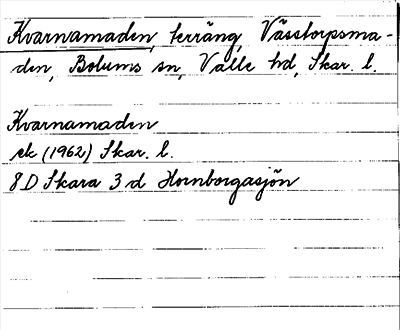 Kvarnamaden, terräng, Vässtorpsma-
den, Bolums sn, Valle hd, Skar. l.
Kvarnamaden
ek (1962) Skar. l.
8D Skara 3 d Hornborgasjön